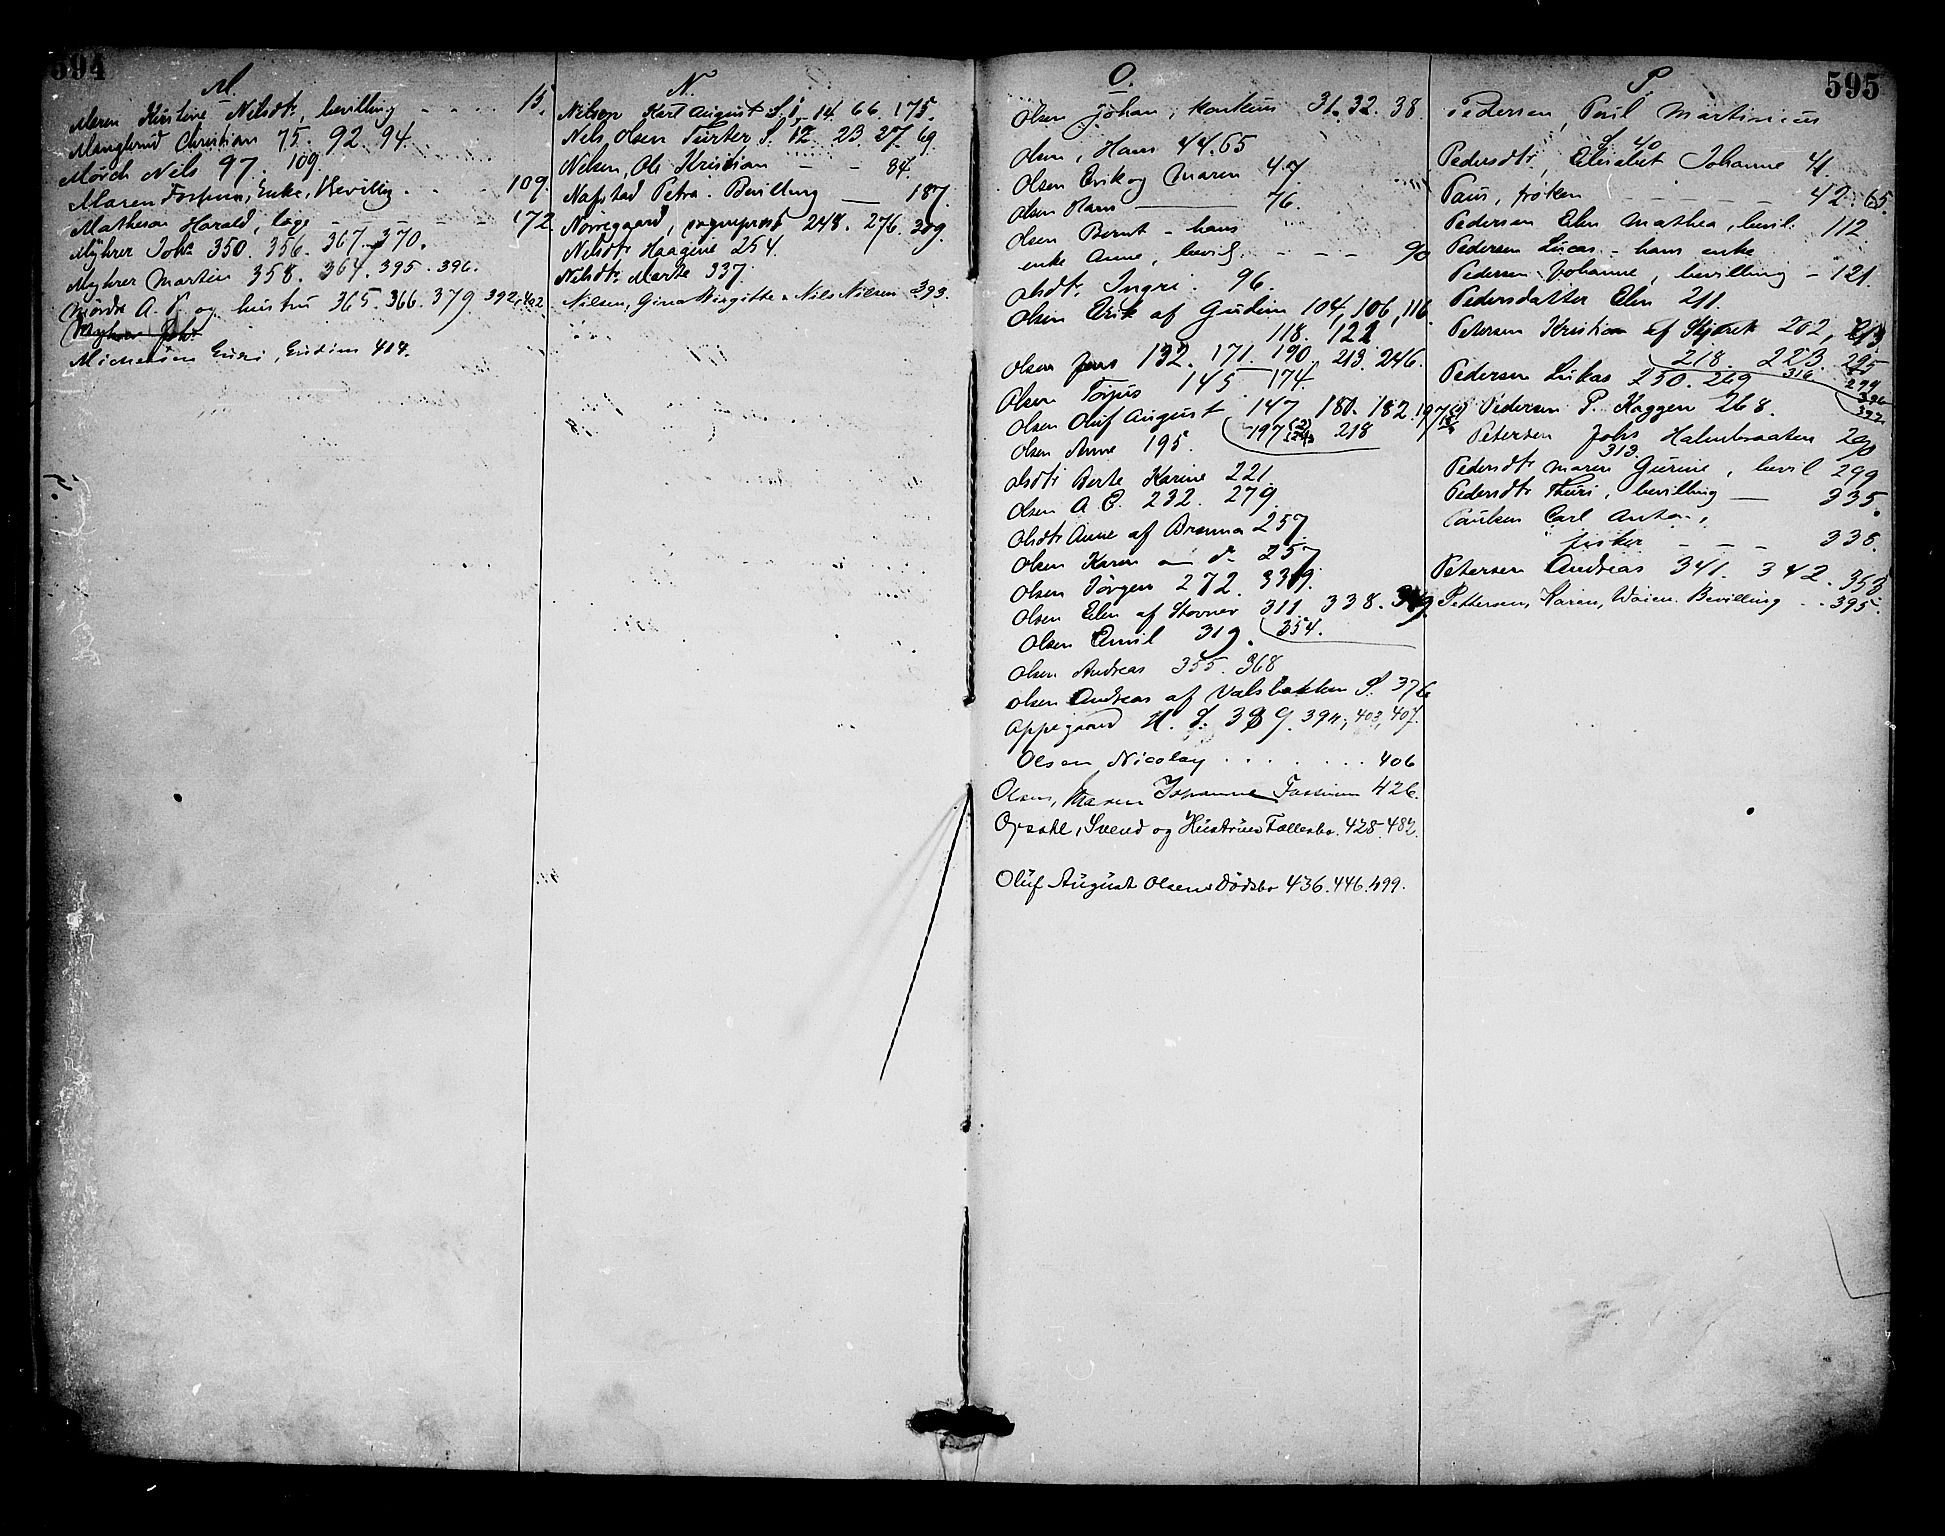 594
M.
Maren Kirstine Nilsdtr, bevilling - - - 15.
Manglerud Christian 75. 92. 94.
Mörch Nils 97. 109.
Maren Fossum, Enke, Bevillig. - - 109.
Matheson Harald, læge - - - - 172.
Myhrer Johs 350. 356. 367. 370.
Myhrer Martin 358. 364. 395. 396.
Mördre A. P. og hustru 365. 366. 379. 392, 402
Myhrer Johs
Michelsen Guri, 404.
N.
Nilsen Karl August S. 1. 14. 66. 175.
Nils Olsen Turter S. 12. 23. 27. 69
Nilsen, Ole Kristian - - 84.
Nafstad Petra. Bevilling — 187.
Nörregaard, sogneprest 248. 276. 309.
Nilsdtr Haagine 254.
Nilsdtr Marte 337.
Nilsen, Gina Birgitte & Nils Nilsen 393.
595
O.
Olsen Johan, konkurs 31. 32. 38.
Olsen, Hans 44. 65
Olsen Erik og Maren 47
Olsen Hans — 76.
Olsen Bernt - hans
enke Anne, bevilg. - - - 90
Olsdtr Ingri. 96.
Olsen Erik af Gudim 104, 106, 116.
118. 122
Olsen Jens 132. 171. 190. 213. 246.
Olsen Torjus 145 174.
Olsen Oluf August 147 180. 182. 197
197 218
Olsen Anne 195.
Olsdtr Berte Karine 221.
Olsen A. E. 232. 279.
Olsdtr Anne af Brenna 257.
Olsen Karen — do 257
Olsen Jörgen 272. 339.
Olsen Elen af Stovner 311. 338. 349.
354.
Olsen Emil 319.
Olsen Andreas 355. 368
Olsen Andreas af Valsbakken S. 376
Oppegaard H. S. 389. 394, 403, 407.
Olsen, Nicolay . . . . . . . 406
Olsen, Maren Johanne Fossum 426.
Opsahl, Svend og Hustrues Fællesbo. 428. 482.
Oluf August Olsens Dödsbo 436. 446. 499.
P.
Pedersen, Paul Martinius
S. 40
Pedersdtr, Elisabet Johanne 41.
Paus, fröken - - - - 42. 65.
Pedersen Elen Mathea, bevil. 112.
Pedersen Lucas - hans enke
Pedersen Johanne, bevilling - 121.
Pedersdatter Elen 211.
Petersen Kristian af 202, 213
218. 223. 295
Pedersen Lukas 250. 269 316 299
396
397
Pedersen P. Kaggen 268.
Petersen Johs Halmbraaten 290
313.
Pedersdtr Maren Gurine, bevil 299
Pedersdtr Thuri, bevilling — 335.
Paulsen Carl Anton,
fisker - - - 335.
Petersen Andreas 341. 342. 353.
Pettersen, Karen, Waien. Bevilling - - 395.